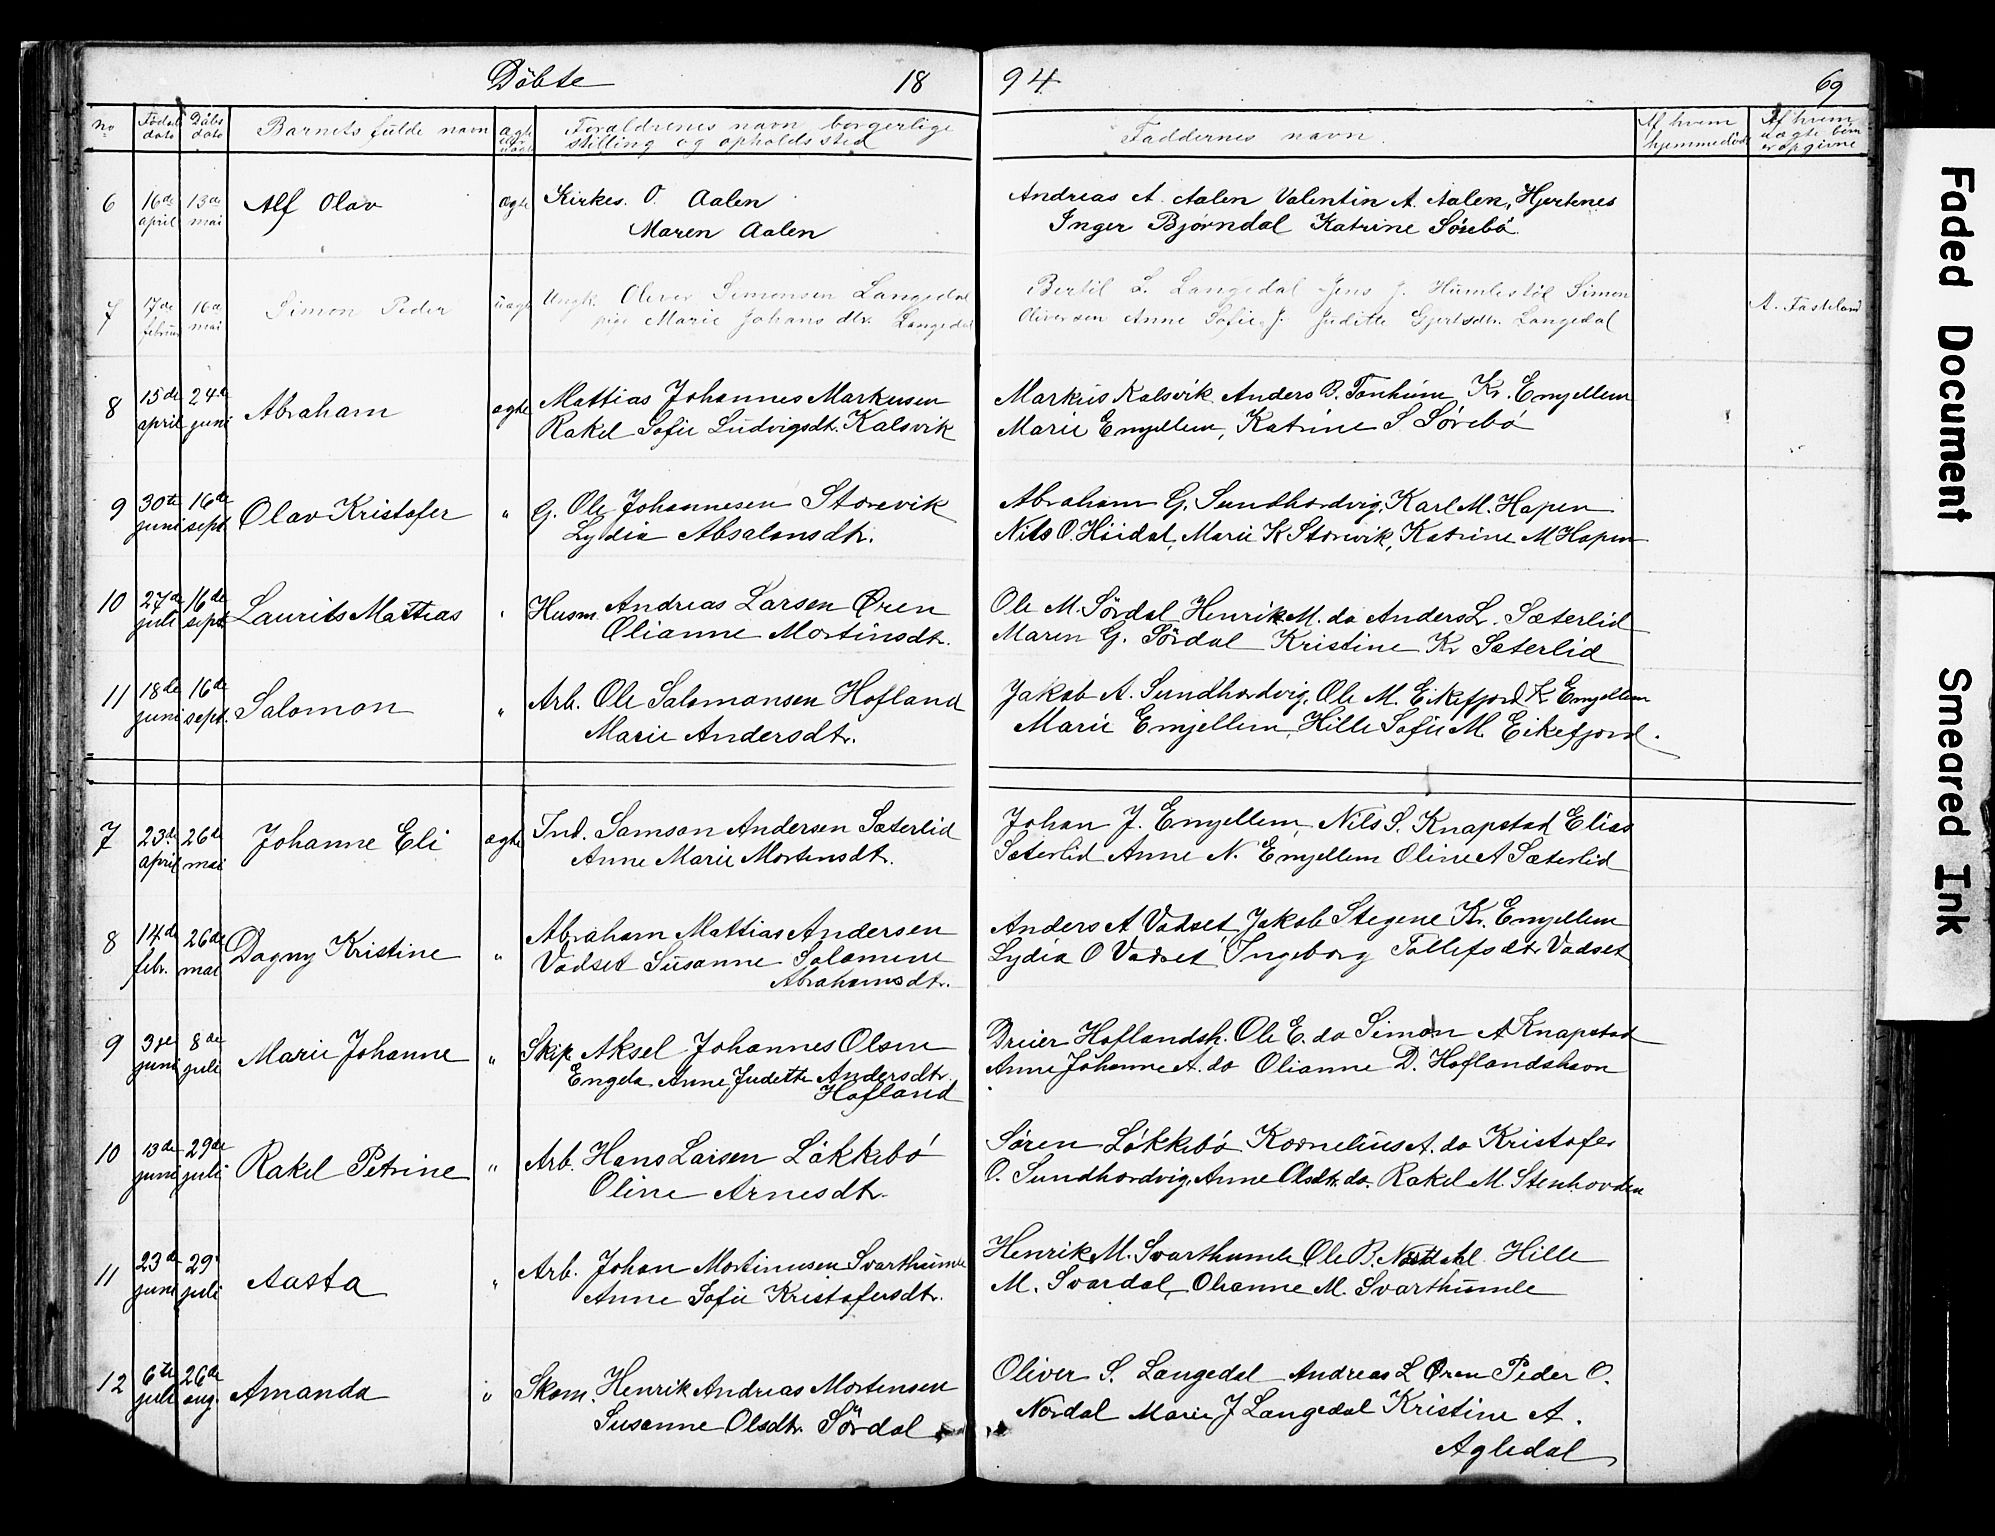 Döbte 18 94 69
no Födsels dato Daabs dato Barnets fulde navn ægte eller uægte Foraldrenes navn borgerlige stilling og opholdssted Faddernes navn Af hvem hjemmedöbt Af hvem uægte börn er opgivne
6 16de april 13de mai Alf Olav ægte Kirkes. O. Aalen
Maren Aalen
Andreas A. Aalen Valentin A. Aalen, Hjertenes
Inger Bjørndal Katrine Sörebö.
7 17de februar 16de mai Simon Peder uægte Ungk. Oliver Simonsen Langedal
pige Marie Johansdtr. Langedal
Bertil S. Langedal Jens J. Humlestöl Simon
Oliversen Anne Sofie J. Juditte Gjertsdtr. Langedal
A. Fasteland
8 15de april 24de juni Abraham ægte Mattias Johannes Markusen
Rakel Sofie Ludvigsdt. Kalsvik
Markus Kalsvik Anders B. Tonheim Kr. Emjellem
Marie Emjellem, Katrine S Sörebö
9 30te juni 16de sept. Olav Kristofer " G. Ole Johannesen Storevik
Lydia Absalonsdtr.
Abraham G. Sundhordvig, Karl M. Hopen
Nils O. Höidal, Marie K Storevik, Katrine M Hopen
10 27de juli 16de sept. Laurits Mattias " Husm. Andreas Larsen Øren
Olianne Mortinsdtr.
Ole M. Sördal Henrik M. do Anders L. Sæterlid
Maren G. Sördal Kristine Kr Sæterlid
11 18de juni 16de sept. Salomon " Arb. Ole Salomonsen Hofland
Marie Andersdtr.
Jakob A. Sundhordvig, Ole M. Eikefjord K Emjellem
Marie Emjellem, Hille Sofie M. Eikefjord.
7 23de april 26de mai Johanne Eli ægte Ind. Samson Andersen Sæterlid
Anne Marie Mortensdtr.
Johan J. Emjellem, Nils S. Knapstad Elias
Sæterlid Anne N. Emjellem Oline A Sæterlid
8 14de febr. 26de mai Dagny Kristine " Abraham Mattias Andersen
Vadset Susanne Salomine
Abrahamsdtr.
Anders A Vadset, Jakob Stegene Kr. Emjellem
Lydia O Vadset Ingeborg Tollefsdtr Vadset
9 3die juni 8de juli Marie Johanne " Skip. Aksel Johannes Olsen
Engela Anne Juditte Andersdtr.
Hofland
Dreier Hoflandsh. Ole E. do Simon A Knapstad
Anne Johanne A. do Olianne D. Hoflandshavn
10 13de juni 29de juli Rakel Petrine " Arb. Hans Larsen Lökkebö
Oline Arnesdtr.
Sören Lökkebö Kornelius A. do Kristofer
O. Sundhordvig, Anne Olsdtr. do. Rakel M. Stenhovden
11 23de juni 29de juli Aasta " Arb. Johan Mortinusen Svarthumle
Anne Sofie Kristofersdtr.
Henrik M. Svarthumle Ole B. Hille
M. Svardal, Olianne M. Svarthumle
12 6te juli 26de aug. Amanda " Skom. Henrik Andreas Mortensen
Susanne Olsdtr. Sördal
Oliver S. Langedal Andreas L Øren Peder O.
Nordal Marie J Langedal Kristine A.
Agledal
Faded Document
Smeared Ink